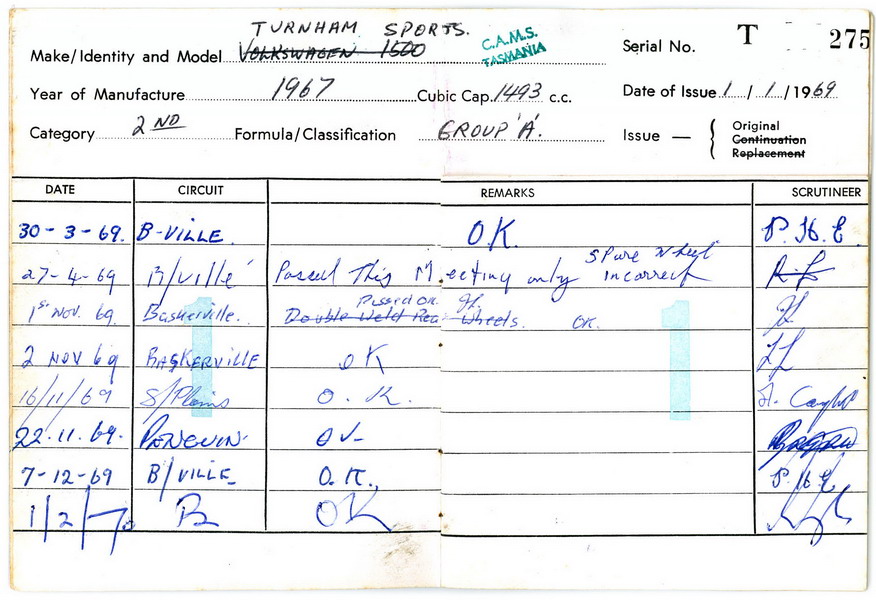 TURNHAM SPORTS.
Make/Identity and Model VOLKSWAGEN 1500 C.A.M.S. TASMANIA Serial No. T 275
Year of Manufacture 1967 Cubic Cap. 1493 c.c. Date of Issue 1 / 1 / 1969
Category 2ND Formula/Classification GROUP 'A'. Issue — { Original
Continuation
Replacement
DATE CIRCUIT REMARKS SCRUTINEER
30-3-69. B-VILLE. O.K. P.H.E.
27-4-69 B/ville Passed This Meeting only Spare wheel incorrect
Passed OK.
1st Nov. 69. Baskerville. Double Weld Rear Wheels. OK.
2 NOV 69 BASKERVILLE OK
16/11/69 S/Plains O.K.
22.11.69. PENGUIN.
7-12-69 B/VILLE O.K. P.H.E.
1/2/70 OK
1 1